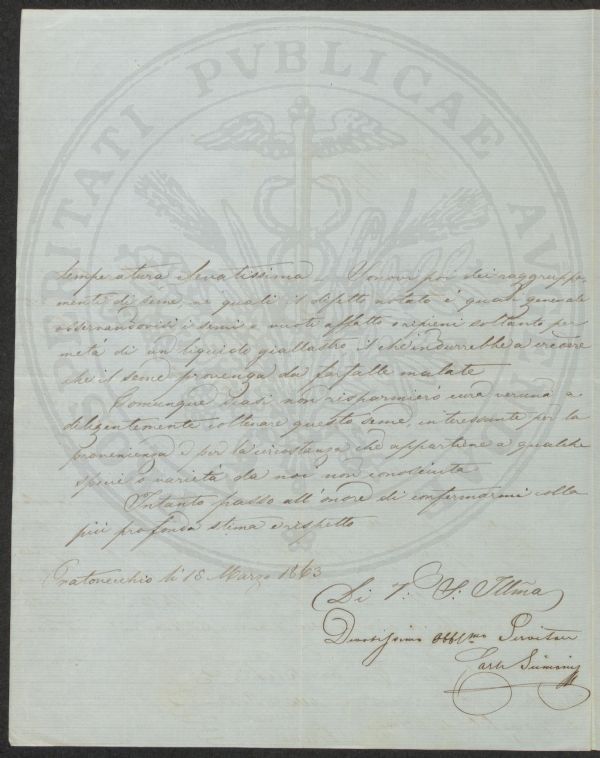 temperatura elevatissima. Sonovi poi dei raggruppa-
menti di seme, ne quali il difetto notato è quasi generale
osservandovisi i semi o vuoti affatto o ripieni soltanto per
metà di un liquido giallastro, il che indurrebbe a credere
che il seme provenga da farfalle malate
Comunque siasi non risparmierò cura veruna a
diligentemente coltivare questo seme, interessante per la
provenienza e per la circostanza che appartiene a qualche
specie o varietà da noi non conosciuta
Intanto passo all'onore di confermarmi colla
più profonda stima e rispetto
Pratovecchio li 18 Marzo 1863
Di V. S. Illma
Devotissimo Obblmo Servitore
Carlo Siemoni
PROSPERITATI PVBLICAE AVGENDAE